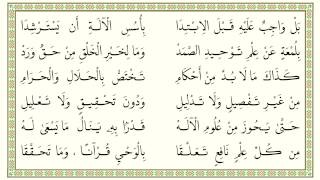 بَلْ وَاجِبٌ عَلَيْهِ قَبْلَ الِابْتِدَا بِأُسُسِ الْآلَةِ أَنْ يَسْتَرْشِدَا
بِلُمْعَةٍ عَنْ عِلْمِ تَوْحِيدِ الصَّمَدْ وَمَا لِخَيْرِ الْخَلْقِ مِنْ حَقٍّ وَرَدْ
كَذَاكَ مَا لَا بُدَّ مِنْ أَحْكَامِ تَخْتَصُّ بِالْحَلَالِ وَالْحَرَامِ
مِنْ غَيْرِ تَفْصِيلٍ وَلَا تَدْلِيلِ وَدُونَ تَحْقِيقٍ وَلَا تَعْلِيلِ
حَتَّى يَحُوزَ مِنْ عُلُومِ الْآلَهْ قَدْرًا بِهِ يَنَالُ مَا يَسْعَى لَهْ
مِنْ كُلِّ عِلْمٍ نَافِعٍ تَعَلَّقَا بِالْوَحْيِ قُرْآنًا ، وَمَا تَحَقَّقَا